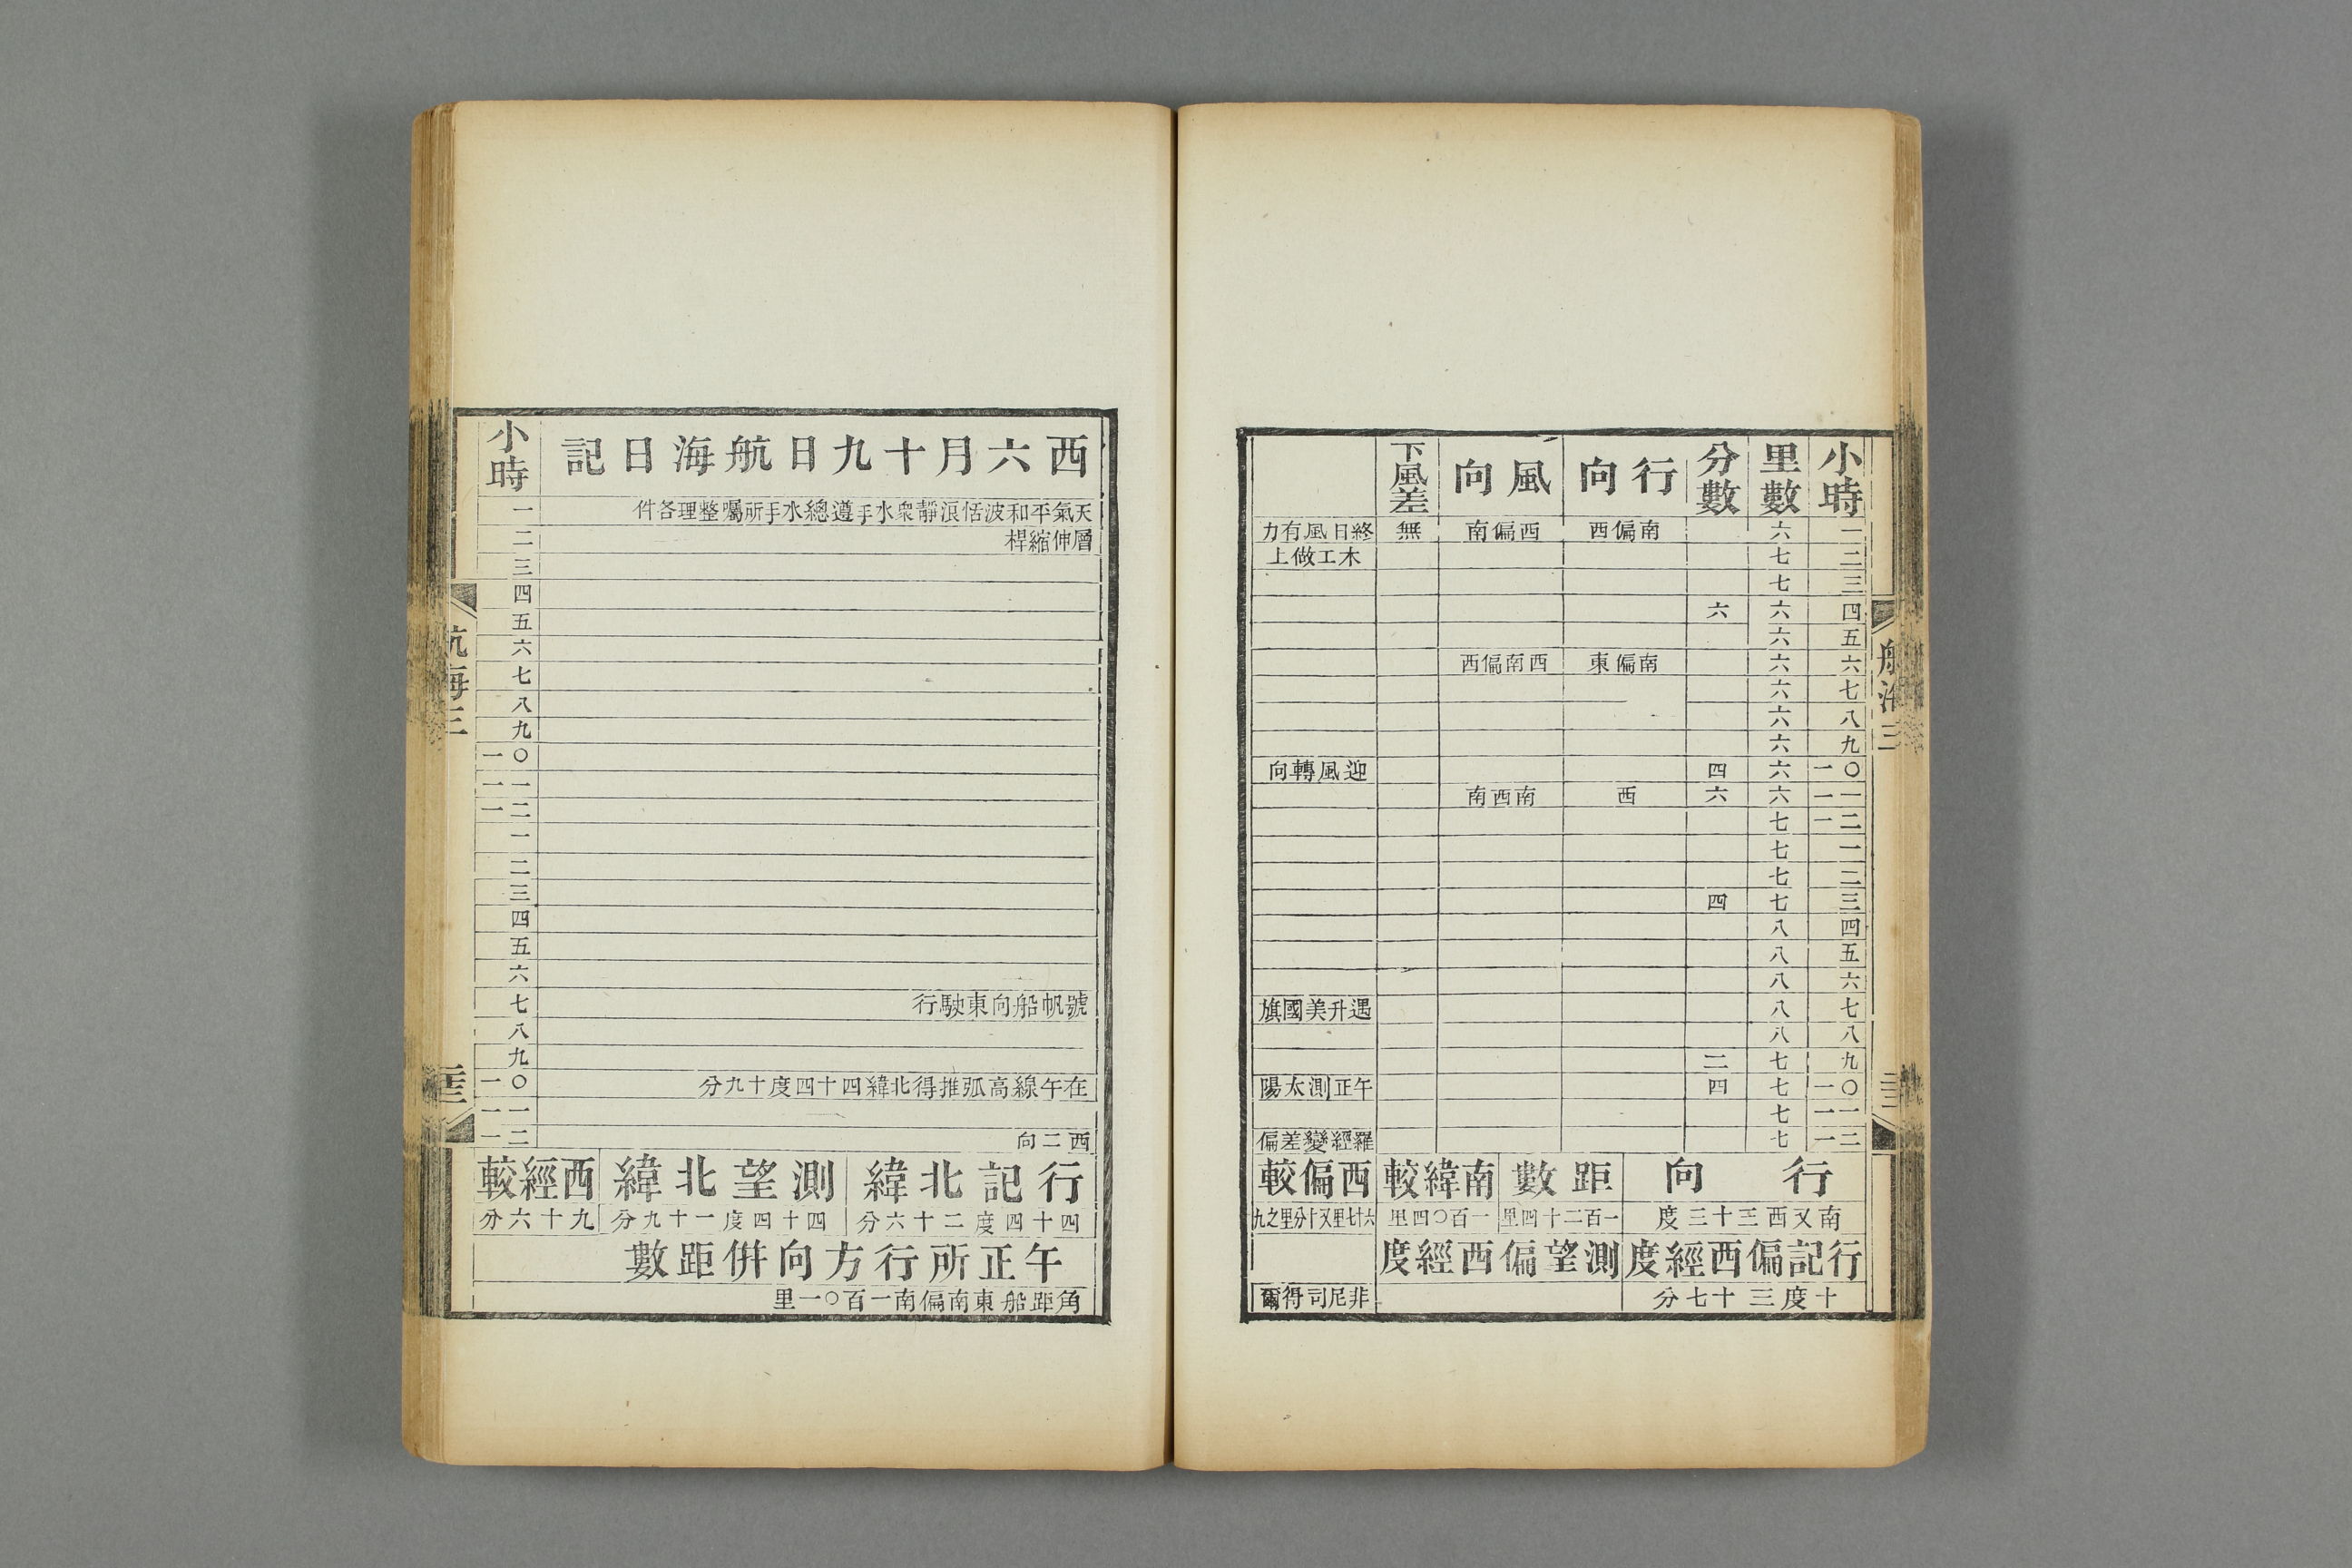 小時 里數 分數 行向 風向 下風差
一 六 南偏西 西偏南 無 終日風有力
二 七 木工做上
三 七
四 六 六
五 六
六 六 南偏東 西南偏西
七 六
八 六
九 六
一〇 六 四 迎風轉向
一一 六 六 西 南西南
一二 七
一 七
二 七
三 七 四
四 八
五 八
六 八
七 八 遇升美國旗
八 八
九 七 二
一〇 七 四 午正測太陽
一一 七
一二 七 羅經變差偏
行向 距數 南緯較 西偏較
南又西三十三度 一百二十四里 一百〇四里 六十七里又十分里之九
行記偏西經度 測望偏西經度
十度三十七分 非尼司得爾
西六月十九日航海日記 小時
天氣平和波恬浪靜衆水手遵總水手所囑整理各件 一
層伸縮桿 二
三
四
五
六
七
八
九
一〇
一一
一二
一
二
三
四
五
六
號帆船向東駛行 七
八
九
在午線高弧推得北緯四十四度十九分 一〇
一一
西二向 一二
行記北緯 測望北緯 西經較
四十四度二十六分 四十四度一十九分 九十六分
午正所行方向併距數
角距船東南偏南一百〇一里
航海三